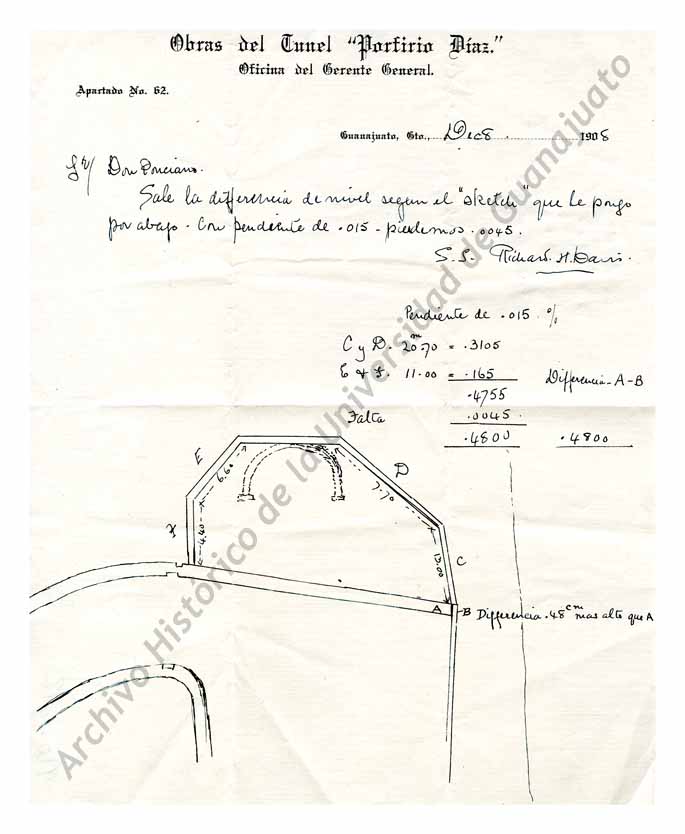 Obras del Tunel "Porfirio Díaz."
Oficina del Gerente General.
Apartado No. 62.
Guanajuato, Gto., Dec 8 1908
Sr/ Don Ponciano.
Sale la differencia de nivel segun el "sketch" que le pongo
por abajo. Con pendiente de .015 - perdemos .0045.
S.S. Richard. H. Davis.
Pendiente de .015 %
C y D. 20.70 m = .3105
E & F. 11.00 = .165 Differencia - A-B
.4755
Falta .0045.
.4800 .4800
E
6.60
D
7.70
4.40
C
13.00
A B Differencia .48 cm mas alto que A
Archivo Histórico de la Universidad de Guanajuato